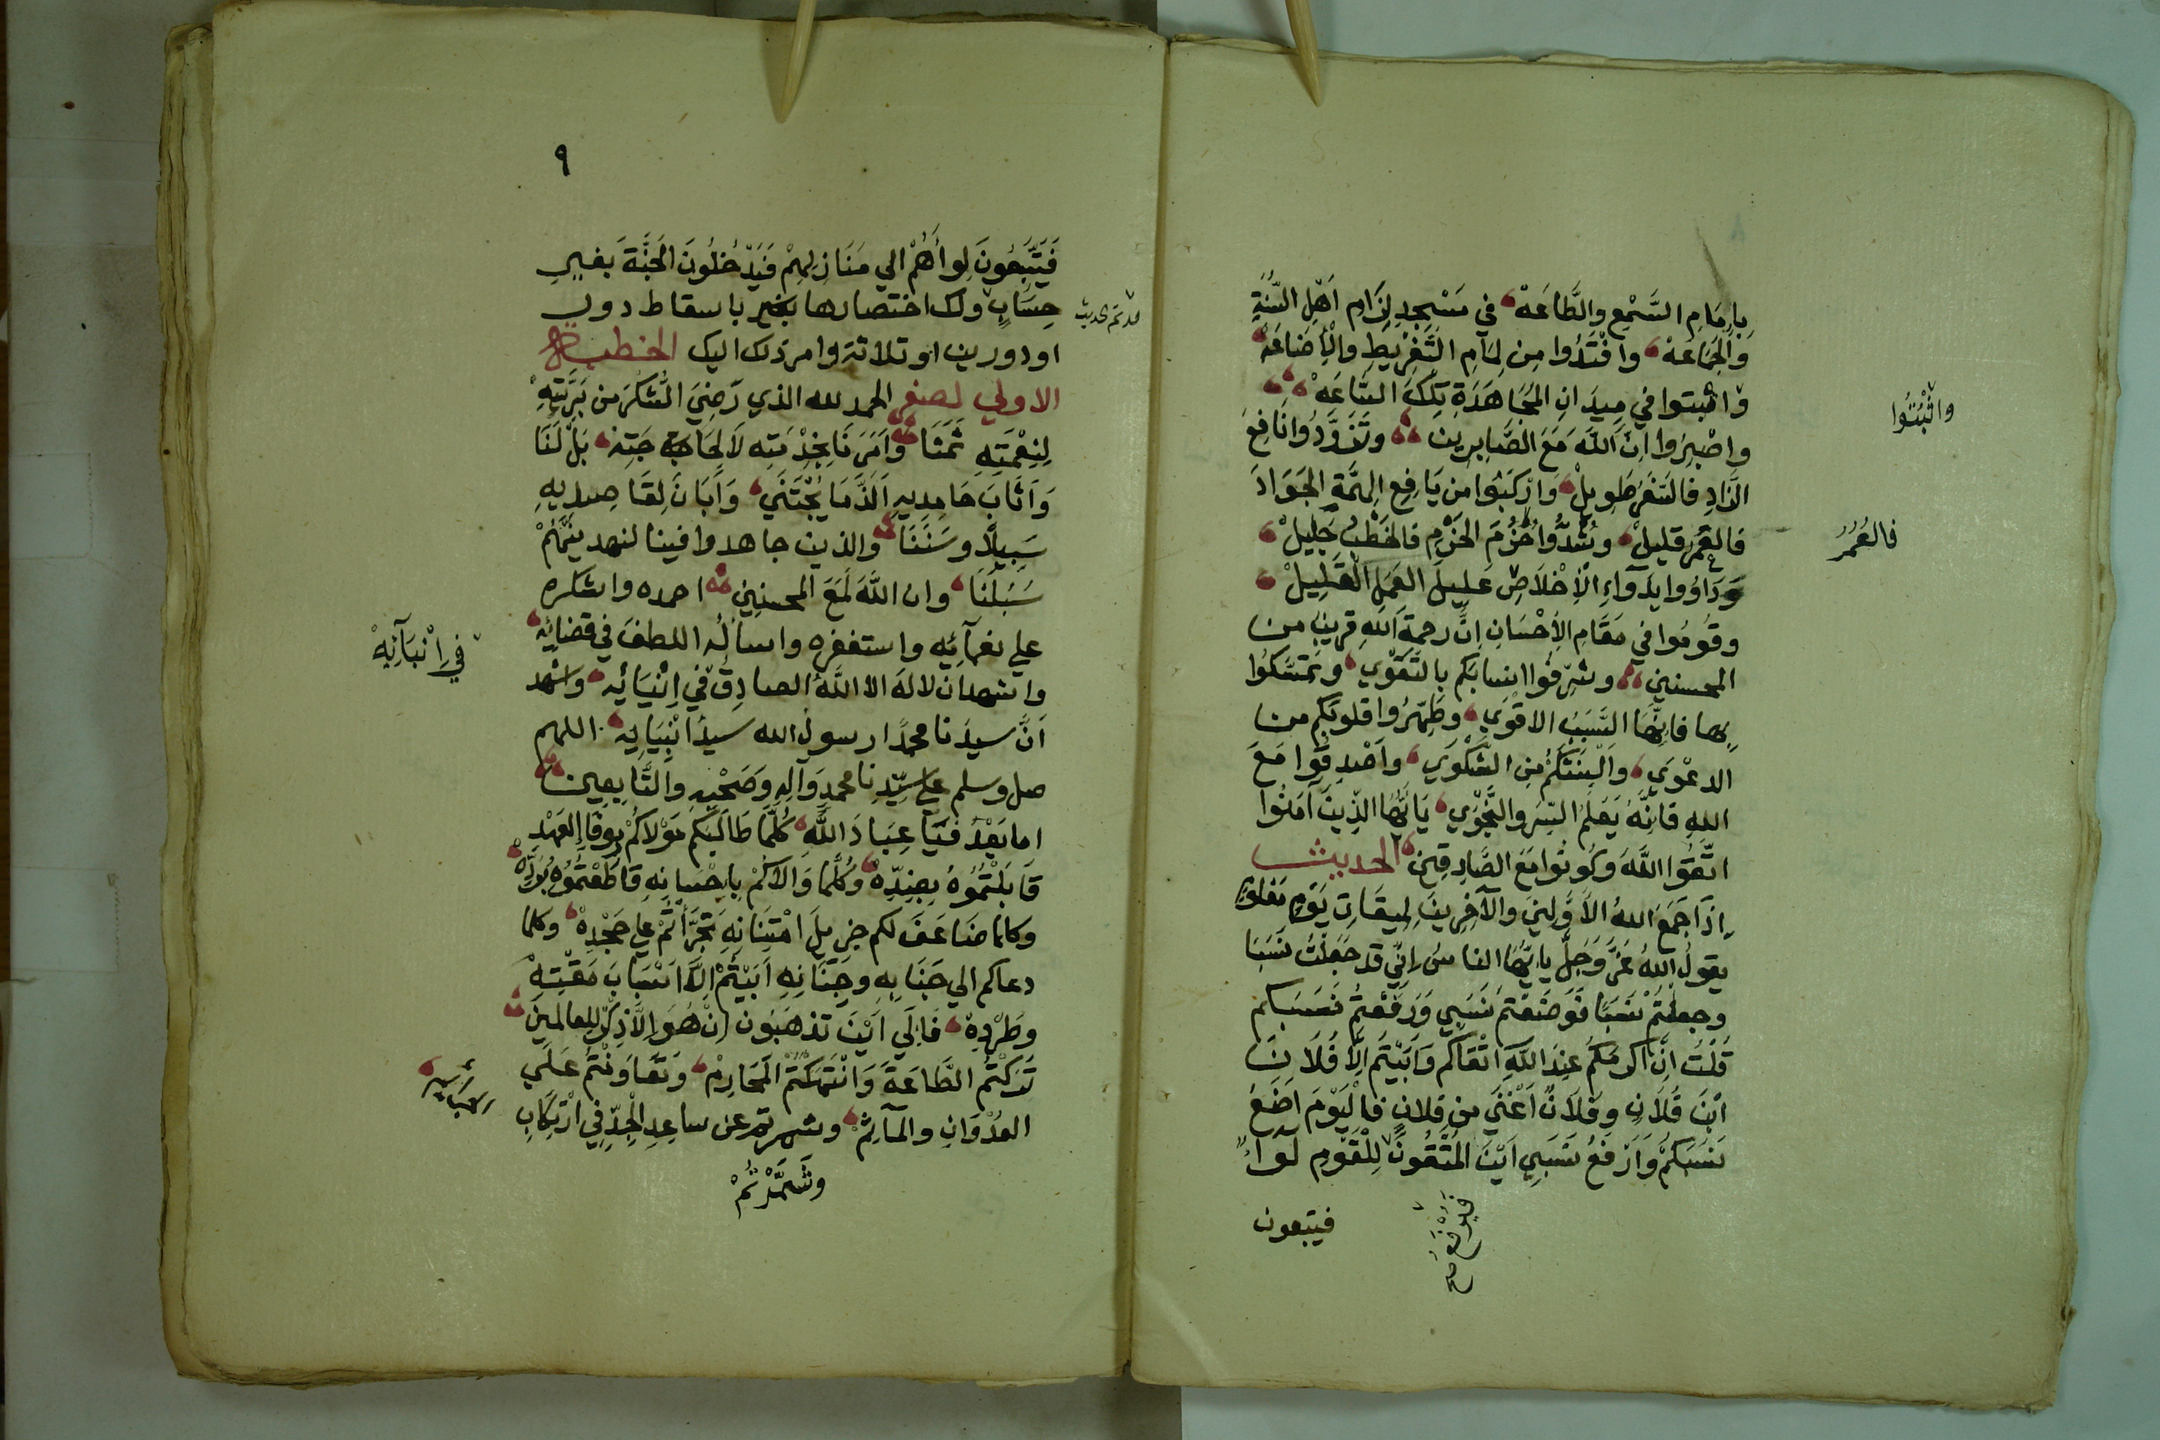 بِإِمَامِ السَّمْعِ والطَّاعَةْ في مَسْجِدِ لِزَامِ اَهْلِ السُّنَّةِ
والجَمَاعَةْ وافْتَدُوا مِن لِمَامِ التَّفْرِيطِ والْإِضَاعَةْ
وٓاثبتوا في مِيدَانِ المُجَاهَدَةِ تِلْكَ السَّاعَهْ
واثْبُتُوا
واصْبِرُوا اِنَّ اللَّهَ مَعَ الصَّابرين وتَزَوَّدُوا نَافِعَ
الزَّادِ فالسَّفَرُ طَوِيلْ وارْكَبُوا مِن يَافِعِ الهِمَّةِ الجَوَادَ
فالعُمْرُ قليلْ وشُدُّوا حُزُمَ الحَزْمِ فالخَطْبُ جَلِيلْ
فالعُمُرُ
وَدَاوُوا بِدَوآءِ الْإِخْلَاصِ عَلِيلَ العَمَلِ القَلِيلْ
وقُومُوا في مَقَامِ الْإِحْسَانِ اِنَّ رحمةَ اللَّهِ قريبٌ من
المحسنين وشرِّفُوا انسابَكم بالتَّقْوَي وتَمَسَّكُوا
بها فإنَّها السَّبَبُ الاقْوَي وطَهِّرُوا قلوبَكم من
الدعْوَي وَاَلْسِنَتَكُمْ مِن الشَّكْوَي واَصْدِقُوا مَعَ
اللهِ فَاِنَّهُ يَعْلَمُ السِّرَ والنَّجْوَي يَااَيُّهَا الذِينَ آمَنُوا
اتَّقُوا اللَّهَ وَكُونُوا مَعَ الصَّادِقِينَ الحديث
اِذَا جَمَعَ اللهُ الاَوَّلِينَ والآخِرِينَ لِمِيقَاتِ يَوْمٍ مَعْلُومٍ
يقولُ اللهُ عَزَّ وَجَلَّ يا ايُّهَا الناسُ اِنِّي قد جَعَلْتُ نَسَبًا
وجعلتُمْ نَسَبًا فَوَضَعْتُمْ نَسَبِي وَرَفَعْتُمْ نَسَبَكم
قُلْتُ اِنَّ اكرمَكُمْ عِندَ اللَّهِ اَتْقَاكُم وَاَبَيْتُم اِلَّا فُلَانَ
ابْنَ فُلَانٍ وفلانٌ اَغْنَي من فلانٍ فالْيَوْمَ اَضَعُ
نَسَبَكُمْ وَاَرْفَعُ نَسَبِي اَيْنَ المُتَّقُونَ لِلْقَوْمِ لِوَاءٌ
فيتبعون
فَيُرْفَعُ صح
٩
فَيَتَّبِعُونَ لِواَءهُمْ الي مَنَازِلهِمْ فَيَدْخُلُونَ الْجَنَّةَ بغيرِ
حِسَابٍ ولك اختصارها بخير باسقاط دون
قد تم الحديث
او دورين او ثلاثة وامر ذلك اليك الخطبة
الاولي لصفر الحمد لله الذي رَضِيَ الشُّكْرَ من بَرِيَّتِهِ
لِنِعْمَتِهِ ثَمَنَا وَاَمَرَنَا بِخِدْمَتِه لَا لِحَاجَتِهْ بَلْ لَنَا
وَاَثَابَ حَامِدِيهِ اَلَذَّ مَا يُجْتَنَي وَاَبَانَ لِقَاصِدِيهِ
سَبِيلًا وسَنَنَا والذين جاهدوا فينا لنهدينَّهُمْ
سُبُلَنَا وان اللَّهَ لَمَعَ المحسنِينْ احمده واشكره
علي نعمآئِهِ واستغفره واسألُه اللطفَ في قضائِهْ
واشهد ان لا اله الا اللَّهُ الصادِقُ فِي اِنْبَائِهْ واشهد
في اِنْبَآئِهْ
اَنَّ سيدَنا محمدًا رسولُ الله سيدُ اَنْبِيَائِهْ اللهم
صل وسلم علي سيِّدِنا محمدٍ وَآلِهِ وَصَحْبِهِ والتَّابِعِين
اما بَعْدُ فَيَآ عِبَادَ اللَّهِ كُلَّمَا طَالَبَكم مَوْلَاكُمْ بِوَفَاءِ الْعَهْدِ
قَابَلْتُمُوهُ بِضِدِّهْ وَكُلَّما وَالَاكُمْ بِاِحْسَانِهِ قَاطَعْتُمُوهُ بِرَدِّهْ
وكلما ضَاعَفَ لكم جزِيلَ امْتِنَانِهِ تَجَرَّأْتُمْ علي جَحْدِهْ وكلما
دعاكم الي جَنَابِهِ وجِنَانِهِ اَبَيْتُمْ اِلَّا اَسْبَابَ مَقْتِهِ
وطَرْدِهْ فَاِلَي اَيْنَ تذهَبُونَ اِنْ هُوَ اِلَّا ذِكْرٌ لِلعالمين
تَرَكْتُم الطَّاعَةَ وَانْتَهَكْتُمُ الْمَحَارِمْ وَتَعَاوَنْتُمْ عَلَي
العُدْوَانِ والمآثِمْ وشمرتم عن ساعِدِ الْجِدِّ فِي ارْتِكَابِ
وشَمَّرْتُمْ